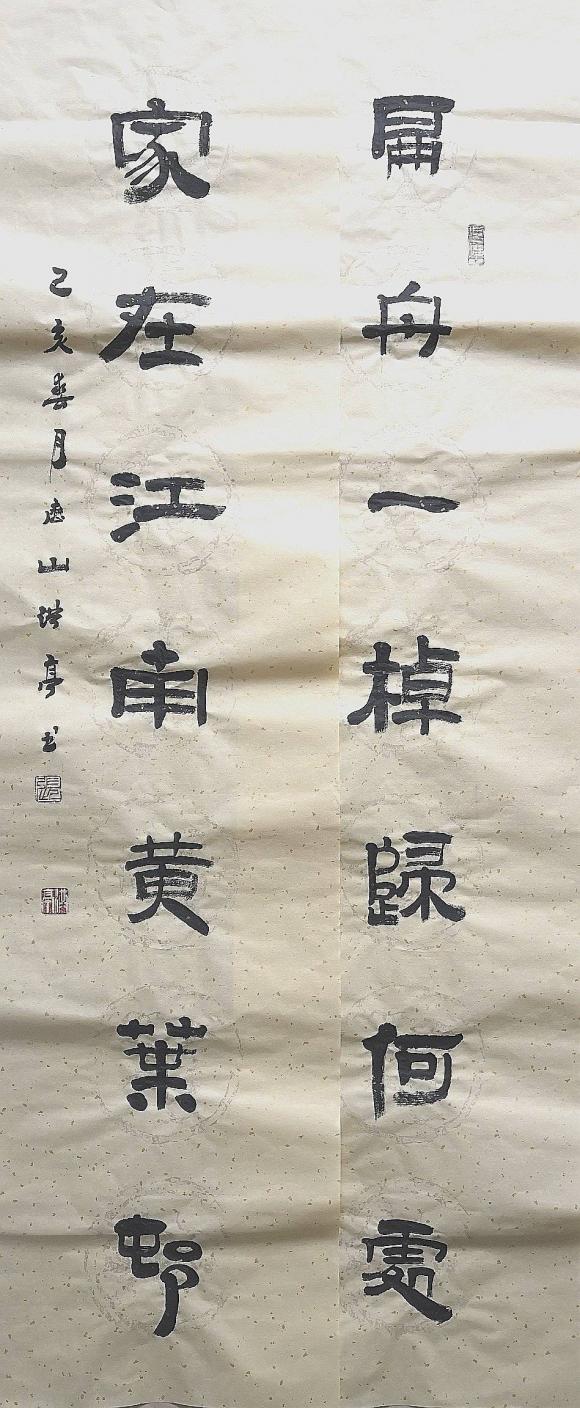 扁舟一棹歸何處
家在江南黄葉邨
己亥春月唐山洪亭书